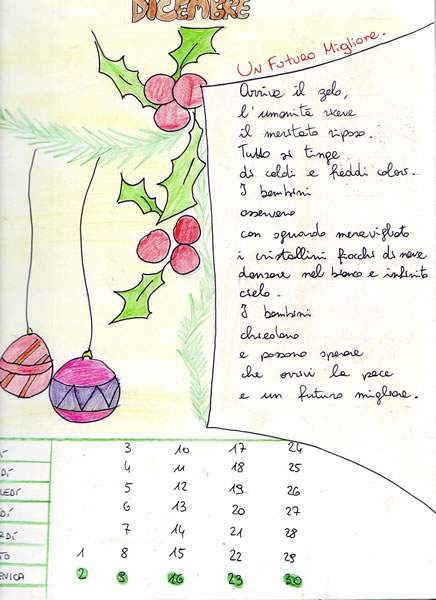 DICEMBRE
Un Futuro Migliore.
Arriva il gelo,
l'umanità riceve
il meritato riposo.
Tutto si tinge
di caldi e freddi colori.
I bambini
osservano
con sguardo meravigliato
i cristallini fiocchi di neve
danzare nel bianco e infinito
cielo.
I bambini
chiedono
e possono sperare
che arrivi la pace
e un futuro migliore.
3 10 17 24
DÌ 4 11 18 25
LEDÌ 5 12 19 26
DÌ 6 13 20 27
RDÌ 7 14 21 28
TO 1 8 15 22 29
ENICA 2 9 16 23 30